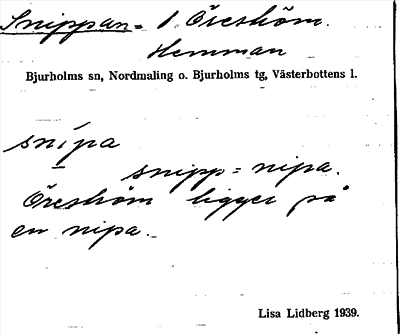 Snippan = 1 Öreström.
Hemman
Bjurholms sn, Nordmaling o. Bjurholms tg, Västerbottens l.
snipa
snipp = nipa.
Öreström ligger på
en nipa.
Lisa Lidberg 1939.